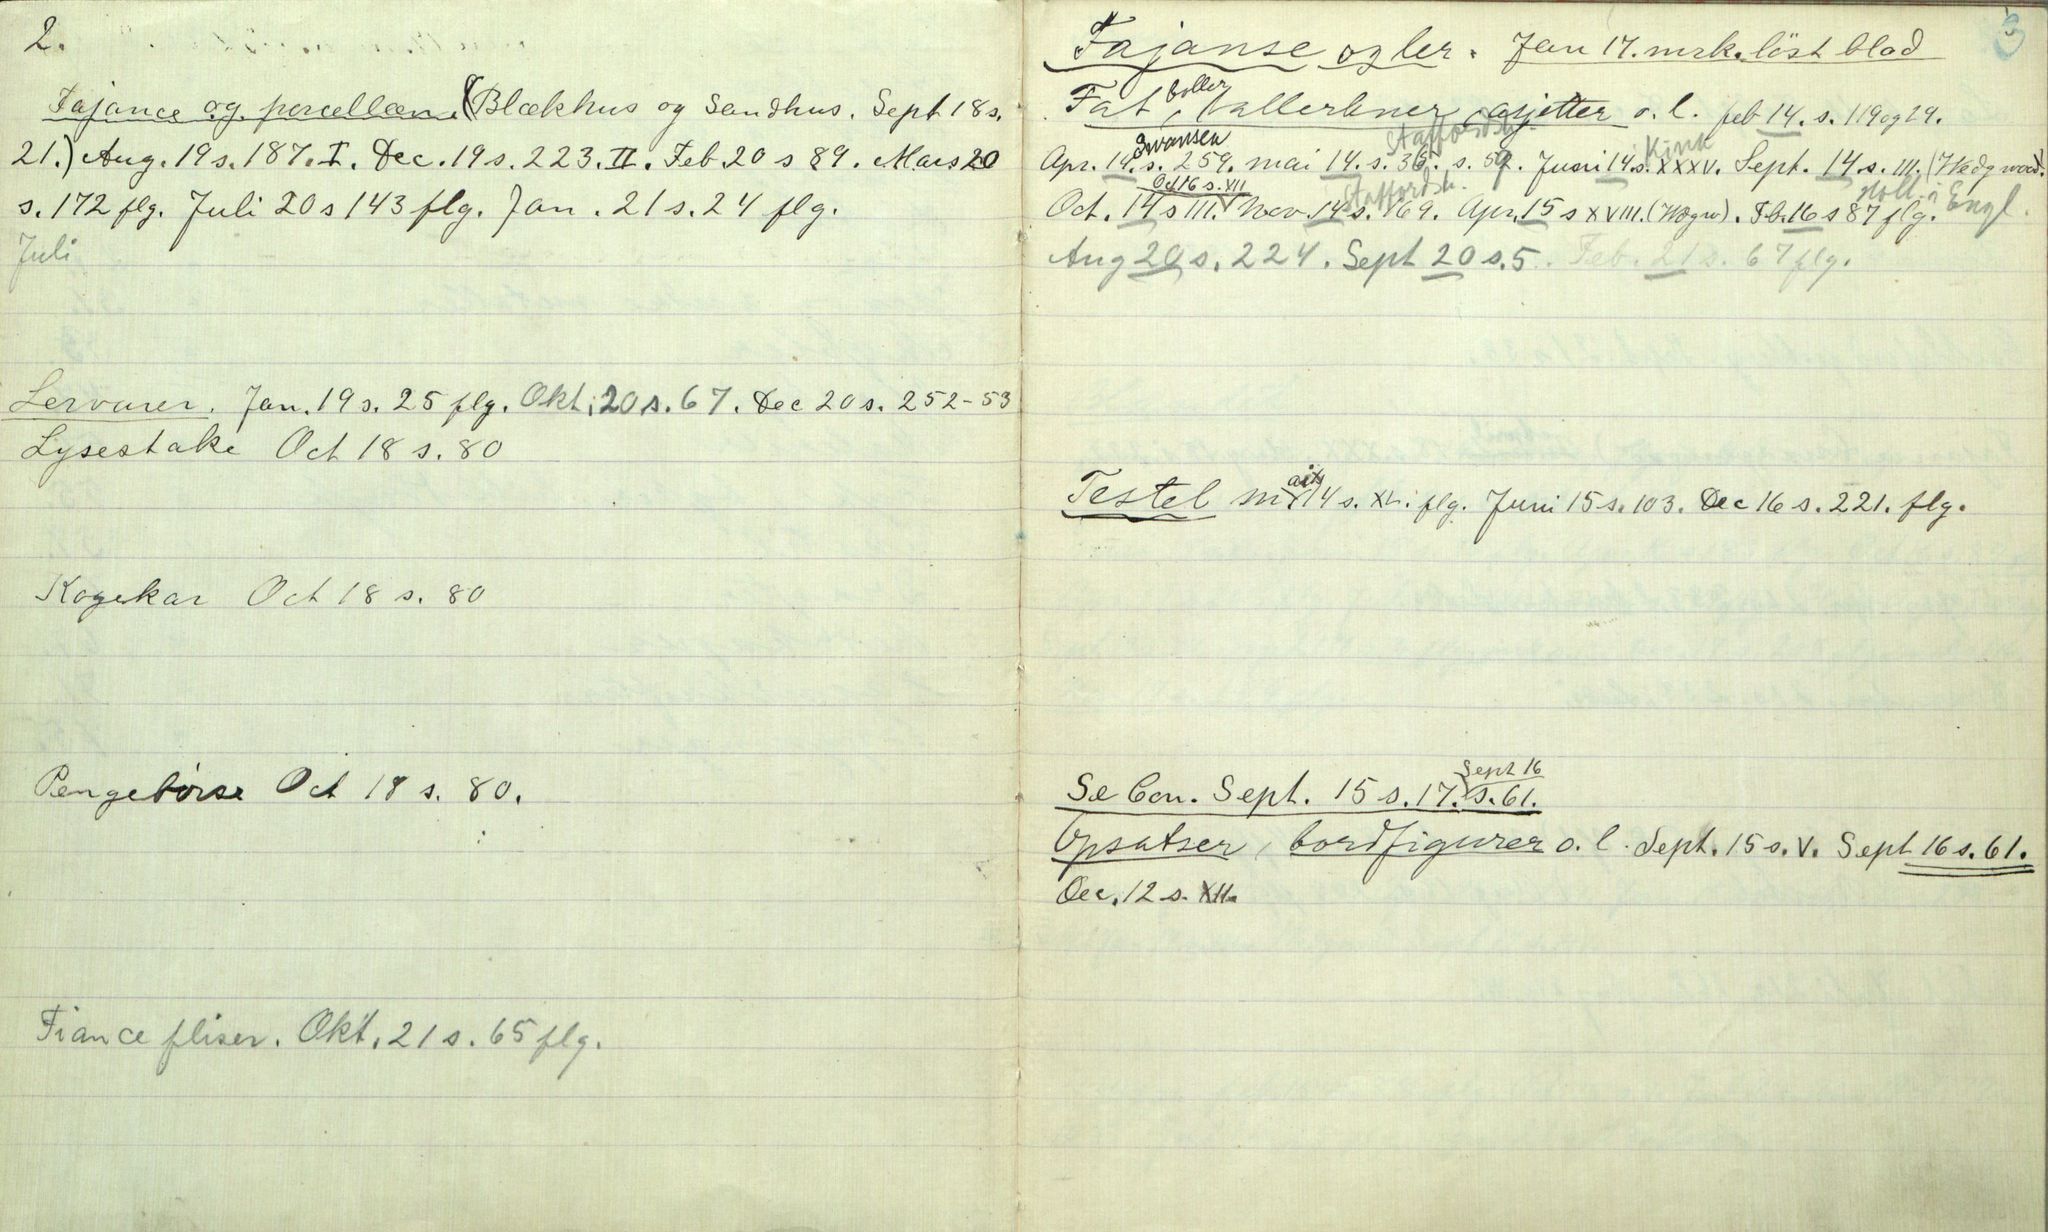 2.
Fajance og porcellæn. (Blækhus og Sandhus. Sept 18 s.
21.) Aug. 19 s. 187. I. Dec. 19 s. 223. II. Feb 20 s 89. Mars 20
s. 172 flg. Juli 20 s 143 flg. Jan. 21 s. 24 flg.
Juli
Lervarer. Jan. 19 s. 25 flg. Okt. 20 s. 67. Dec 20 s. 252-53
Lysestake Oct 18 s. 80
Kogekar Oct 18 s. 80
Pengebörse Oct 18 s. 80.
Fiance fliser. Okt. 21 s. 65 flg.
3
Fajanse og ler. Jan 17. mrk. löst blad
boller
Fat, tallerkner, asjetter o. l. feb 14. s. 119 og 29.
Swansea Staffordsh. Kink
Apr. 14. s. 259. mai 14. s. 36. s. 59. Juni 14. s. XXXV. Sept. 14. s. III. (Wedgwood).
Oct 16 s. XII Staffordsh. Holl. i Engl.
Oct. 14 s III. Nov. 14 s. 169. Apr. 15 s XVIII. (Wgw). Feb. 16 s 87 flg.
Aug 20 s. 224. Sept 20 s. 5. Feb. 21 s. 67 flg.
Testel 14 s. XL. flg. Juni 15 s. 103. Dec 16 s. 221. flg.
Sept 16
Se Con. Sept. 15 s. 17. s. 61.
Opsatser, bordfigurer o. l. Sept. 15 s. V. Sept 16 s. 61.
Dec. 12 s. XII.